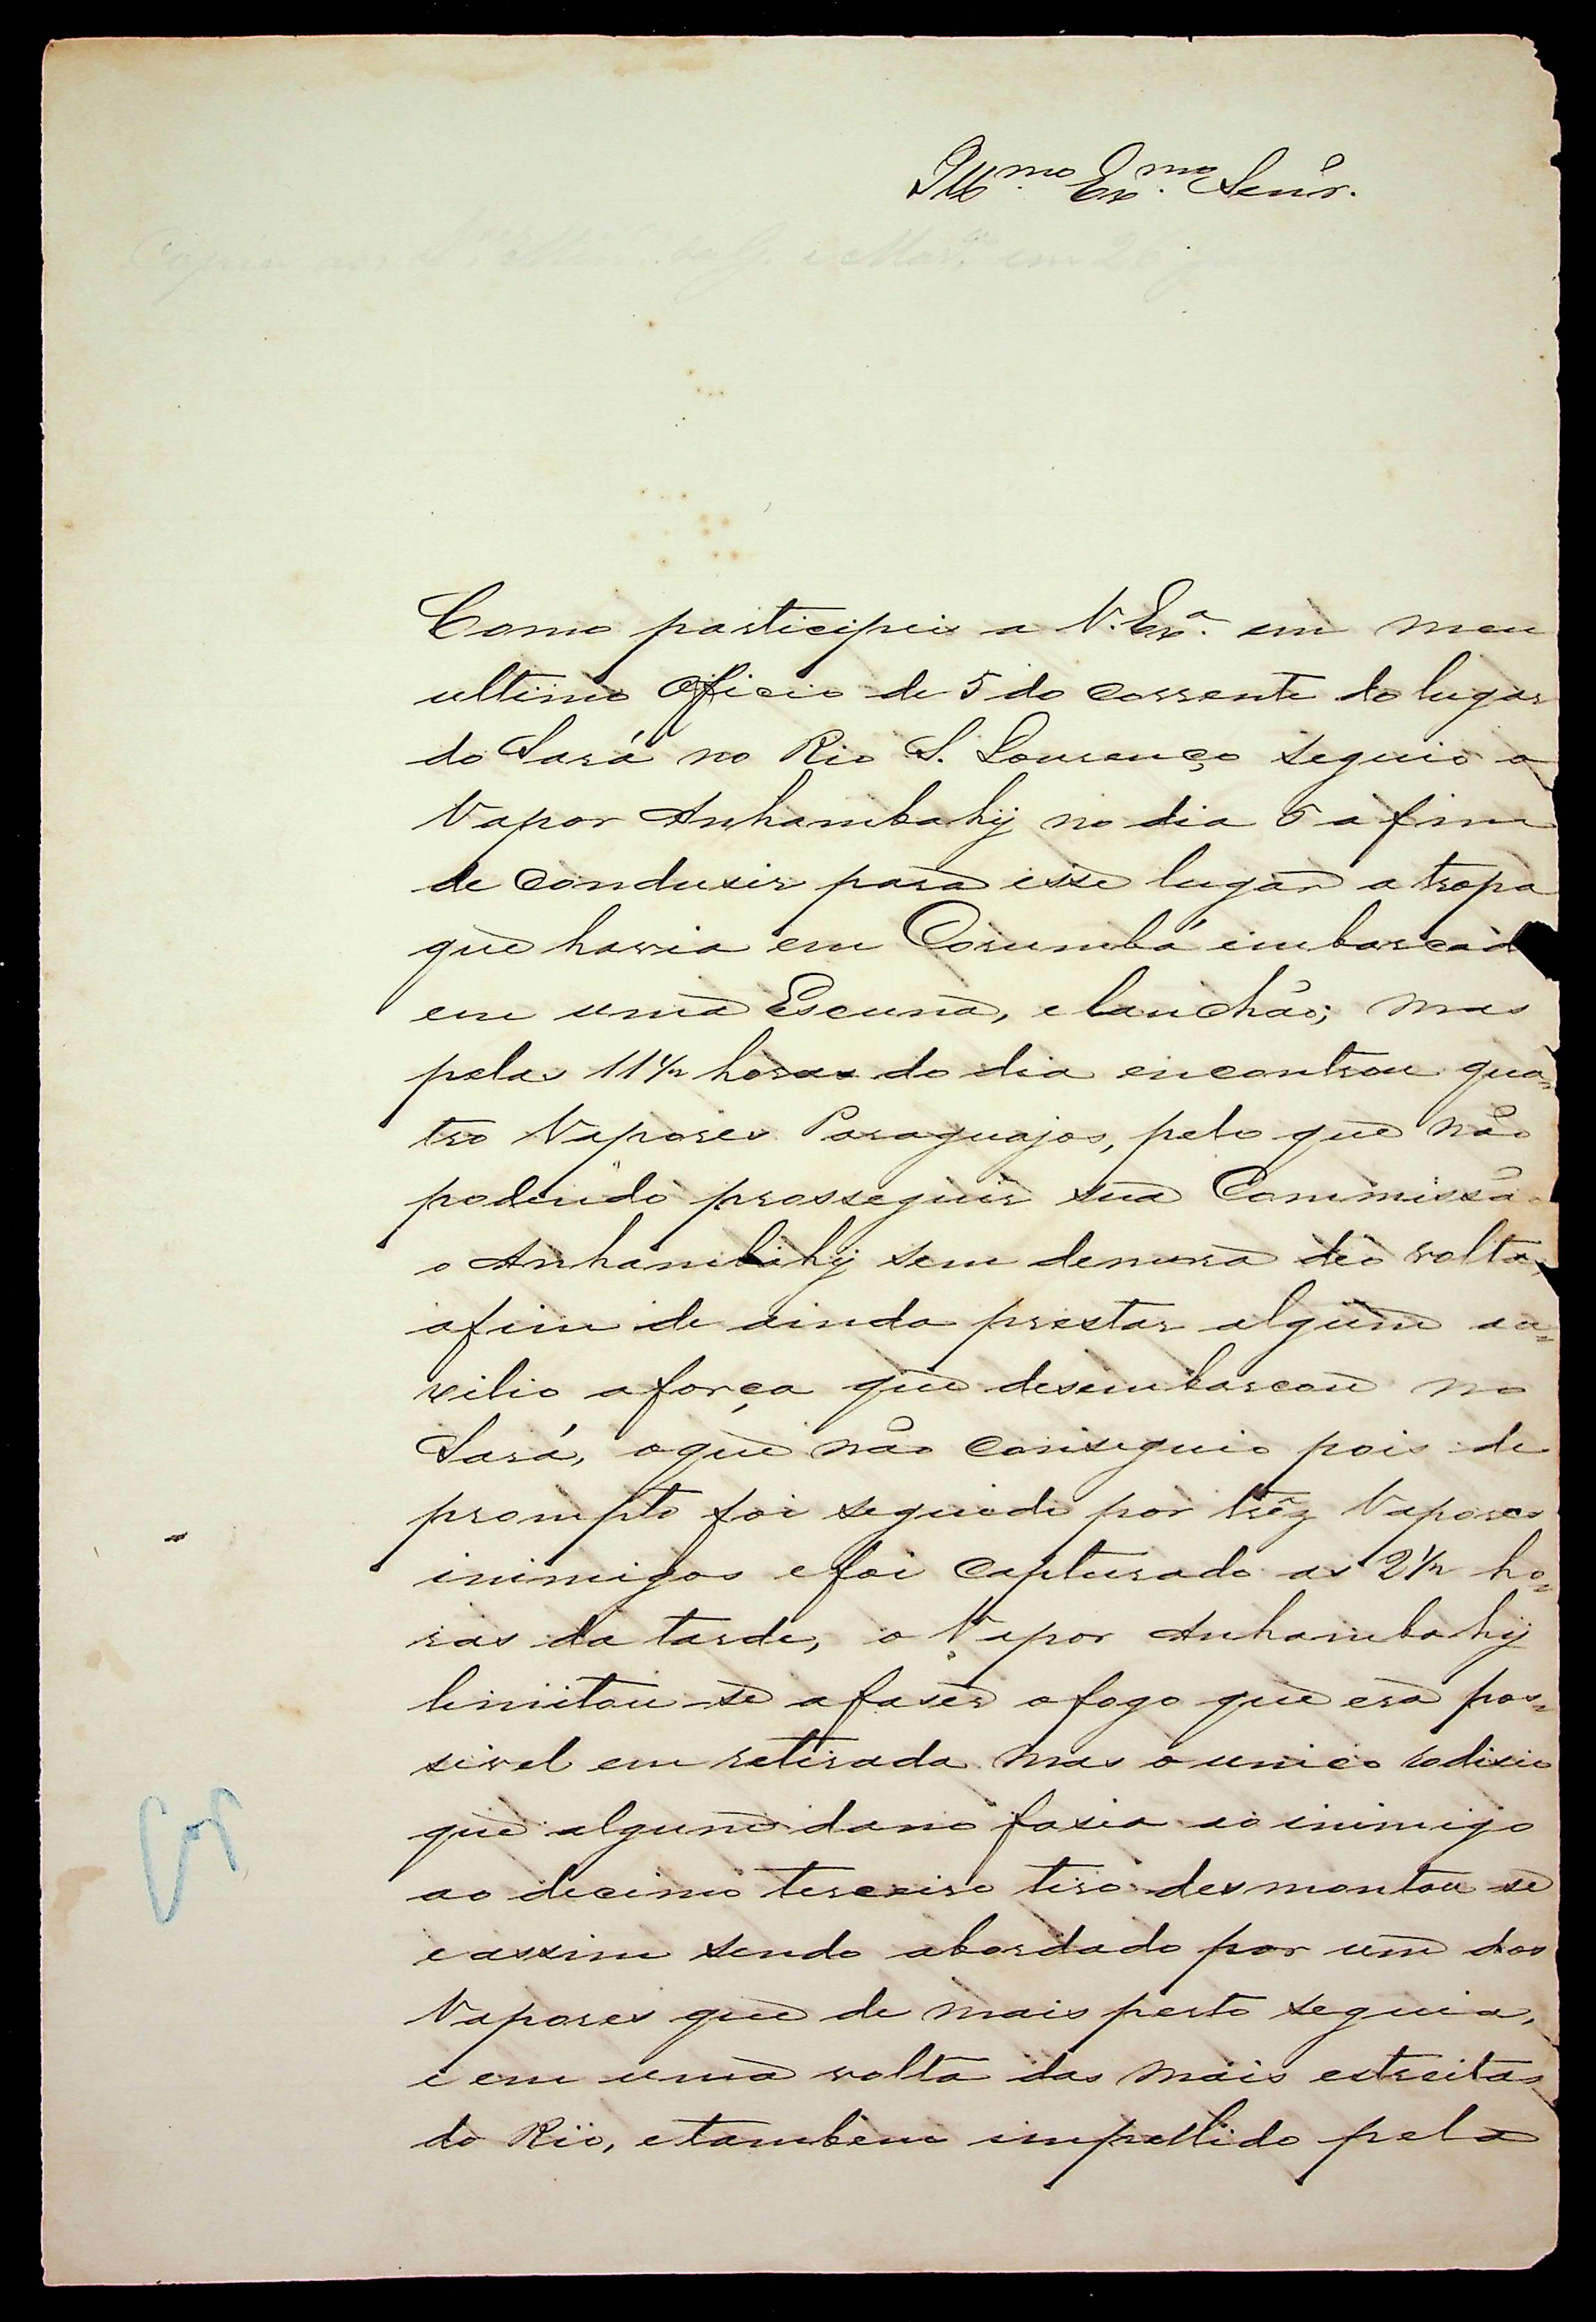 Illmo. Exmo. Senr.
Copia aos Srs. Min. da G. e Mara. em 20
Como participei a V. Exa. em meu
ultimo Oficio de 5 do corrente do lugar
do Sará no Rio S. Lourenço seguio o
Vapor Anhambahÿ no dia 6 a fim
de condusir para esse lugar a tropa
que havia em Corumbá imbarcad
em uma Escuna, e lanchão; mas
pelas 11 1/2 horas do dia encontrou qua=
tro Vapores Paraguajos, pelo que não
podendo prosseguir sua Commissão
o Anhambahÿ sem demora deo volta,
afim de ainda prestar algum au=
xilio a força que desembarcou no
Sará, o que não conseguio pois de
prompto foi seguido por trêz Vapores
inimigos e foi capturado as 2 1/2 ho=
ras da tarde, o Vapor Anhambahÿ
limitou-se a faser o fogo que era pos=
sivel em retirada mas o unico rodisio
que algum dano fasia ao inimigo
ao decimo terceiro tiro desmontou se
e assim sendo abordado por um dos
Vapores que de mais perto seguia,
e em uma volta das mais estreitas
do Rio, e tambem impellido pela